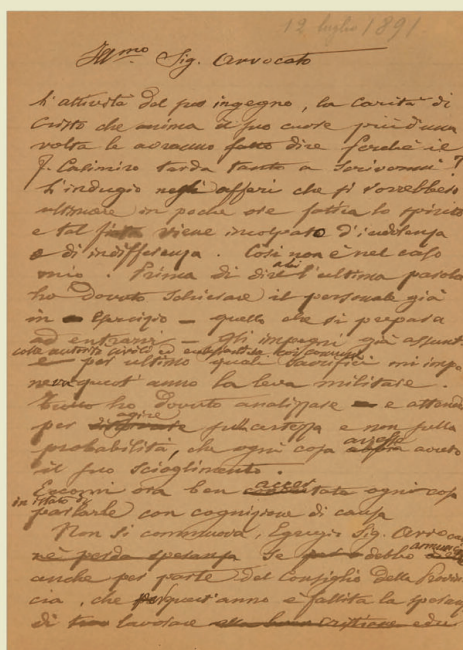 12 luglio 1891.
Ill.mo Sig. Avvocato
L'attività del suo ingegno, la carità di
Cristo che anima il suo cuore più d'una
volta le avranno fatto dire perchè il
P. Casimiro tarda tanto a scrivermi?
L'indugio negli affari che si dovrebbero
ultimare in poche ore fattia lo spirito
e tal viene incolpato d'indolenza
e di indifferenza. Così non è nel caso
mio. Prima di dire l'ultima parola
ho dovuto schierare il personale già
in esercizio — quello che si prepara
ad entrarvi — gli impegni già assunti
colle autorità civili ed
e per ultimo quali sacrifici mi impo
neva quest'anno la leva militare.
Tutto ho dovuto analizzare — e attendere
per agire sulla certezza e non sulla
probabilità, che ogni cosa avesse avuto
il suo scioglimento.
Eccomi ora ben ogni cosa
in istato di
parlarle con cognizione di causa
Non si commuova, Egregio Sig. Avvoca
nè perda speranza se debbo
anche per parte del Consiglio della Provin
cia, che quest'anno è fallita la speranza
di lavorare